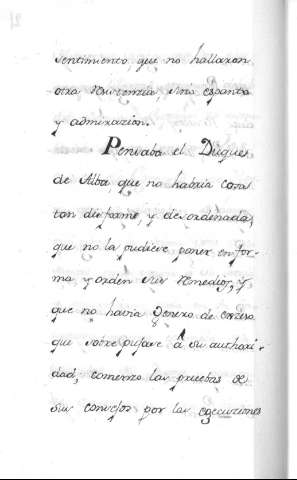 sentimiento, que no hallaron
otra sino espanto
y admiracion.
Pensaba el Duque
de Alba, que no habria cosa
tan disforme, y desordenada,
que no la pudiese poner en for-
ma, y orden sus remedios, y
que no havia genero de exceso
que sobre pujase á su authori-
dad; comenzo las pruebas de
sus consejos por las egecuciones